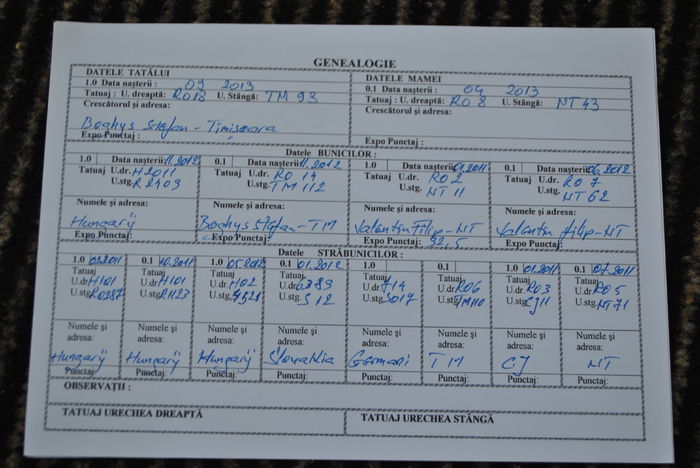 GENEALOGIE
DATELE TATĂLUI
DATELE MAMEI
1.0 Data nașterii : 09 2013
0.1 Data nașterii : 04 2013
Tatuaj : U. dreaptă: RO18 U. Stângă: TM 93
Tatuaj : U. dreaptă: RO 8 U. Stângă: NT 43
Crescătorul și adresa:
Crescătorul și adresa:
Boghys Stefan - Timisoara
Expo Punctaj :
Expo Punctaj:
Datele BUNICILOR :
1.0 Data nașterii 11.2012 0.1 Data nașterii 11.2012 1.0 Data nașterii 01.2011 0.1 Data nașterii 06.2012
Tatuaj U.dr. H2011 Tatuaj U.dr: RO 14 Tatuaj U.dr: RO 2 Tatuaj U.dr: RO 7
U.stg. R2403 U.stg: TM 112 U.stg: NT 11 U.stg: NT 62
Numele și adresa: Numele și adresa: Numele și adresa: Numele și adresa:
Hungary Boghys Stefan - TM Valentin Filip - NT Valentin Filip - NT
Expo Punctaj: Expo Punctaj: Expo Punctaj: 92,5 Expo Punctaj:
Datele STRĂBUNICILOR :
1.0 0.1 10.2011 1.0 05.2012 0.1 01.2012 1.0 0.1 1.0 01.2011 0.1 07.2011
Tatuaj Tatuaj Tatuaj Tatuaj Tatuaj Tatuaj Tatuaj Tatuaj
U.dr H101 U.dr H101 U.dr H02 U.dr U.dr 714 U.dr RO6 U.dr: RO3 U.dr: RO5
U.stg R0287 U.stg R1123 U.stg U.stg: S12 U.stg: S017 U.stg: TM110 U.stg: CJ11 U.stg: NT71
Numele și Numele și Numele și Numele și Numele și Numele și Numele și Numele și
adresa: adresa: adresa: adresa: adresa: adresa: adresa: adresa:
Hungary Hungary Hungary Slovakia Germani TM CJ NT
Punctaj: Punctaj: Punctaj: Punctaj: Punctaj: Punctaj: Punctaj: Punctaj:
OBSERVAȚII :
TATUAJ URECHEA DREAPTĂ
TATUAJ URECHEA STÂNGĂ